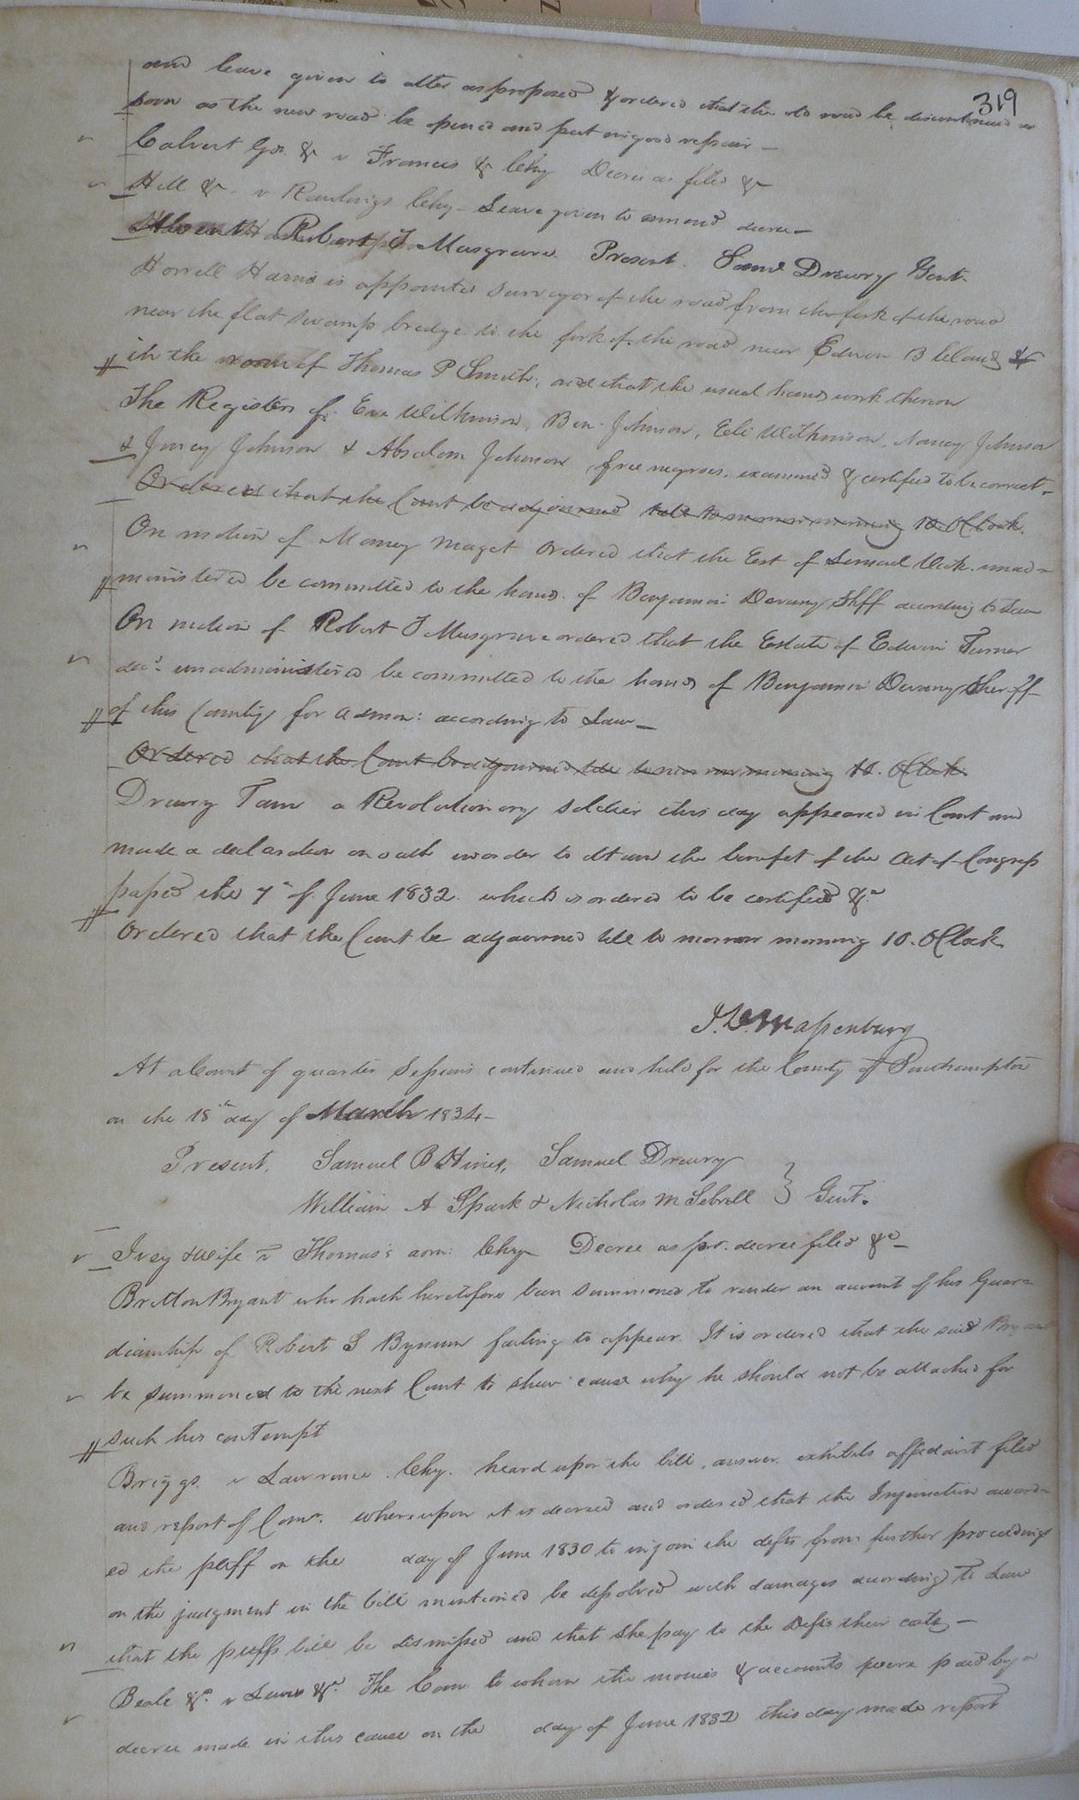 319
and leave given to alter as proposed & ordered that the old road be discontinued as
soon as the new road be opened and put in good repair —
Calvert Gdn &c v Francis &c Chy Decree as filed &c
Hill &c v Rawlings Chy — Leave given to amend decree —
Absent Robert T Musgrave Present Saml Drewry Gent.
Horrell Harris is appointed surveyor of the road from the fork of the road
near the flat swamp bridge to the fork of the road near Edwin B Claud &c
in the room of Thomas P Smith, and that the usual hands work thereon
The Registers of Eva Wilkinson, Ben Johnson, Eli Wilkinson, Nancy Johnson
& Jincey Johnson & Absalom Johnson free negroes, examined & certified to be correct —
Ordered that the Court be adjourned till to morrow morning 10 OClock.
On motion of Maget ordered that the Est of Lemuel unad-
ministered be committed to the hands of Benjamin Devany Shff according to Law
On motion of Robert T Musgrave ordered that the Estate of Edwin Turner
decd unadministered be committed to the hands of Benjamin Devany Sheriff
of this County for admon: according to Law —
Ordered that the Court be adjourned till to morrow morning 10. OClock
Drewry Tann a Revolutionary soldier this day appeared in Court and
made a declaration on oath in order to obtain the benefit of the Act of Congress
passed the 7th of June 1832 which is ordered to be certified &c
Ordered that the Court be adjourned till to morrow morning 10. OClock
Massenburg
At a Court of quarter Sessions continued and held for the County of Southampton
on the 18th day of March 1834 —
Present, Samuel B Hines, Samuel Drewry
William A Spark & Nicholas M Sebrell } Gent.
Ivey & wife v Thomas's adm: Chy Decree as pr. decree filed &c —
Britton Bryant who hath heretofore been summoned to render an account of his Guar-
dianship of Robert G Bynum failing to appear. It is ordered that the said Bryant
be summoned to the next Court to shew cause why he should not be attached for
such his contempt
Briggs v Lawrence Chy. heard upon the bill, answer exhibits affidavit filed
and report of Comr. whereupon it is decreed and ordered that the Injunction award-
ed the plff on the day of June 1830 to injoin the defts from further proceedings
on the judgment in the bill mentioned be dissolved with damages according to Law
that the plffs bill be dismissed and that she pay to the Defts their costs —
Beale &c. v Lewis &c. The Comr to whom the monies & accounts were paid by a
decree made in this cause on the day of June 1832 this day made report